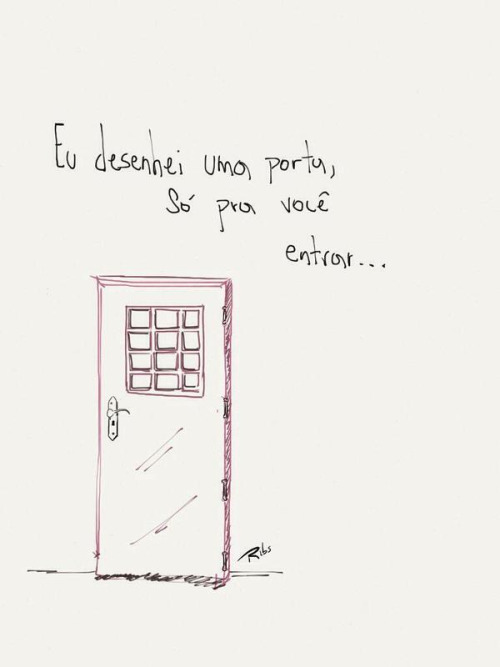 Eu desenhei uma porta,
Só pra você
entrar...
Ribs